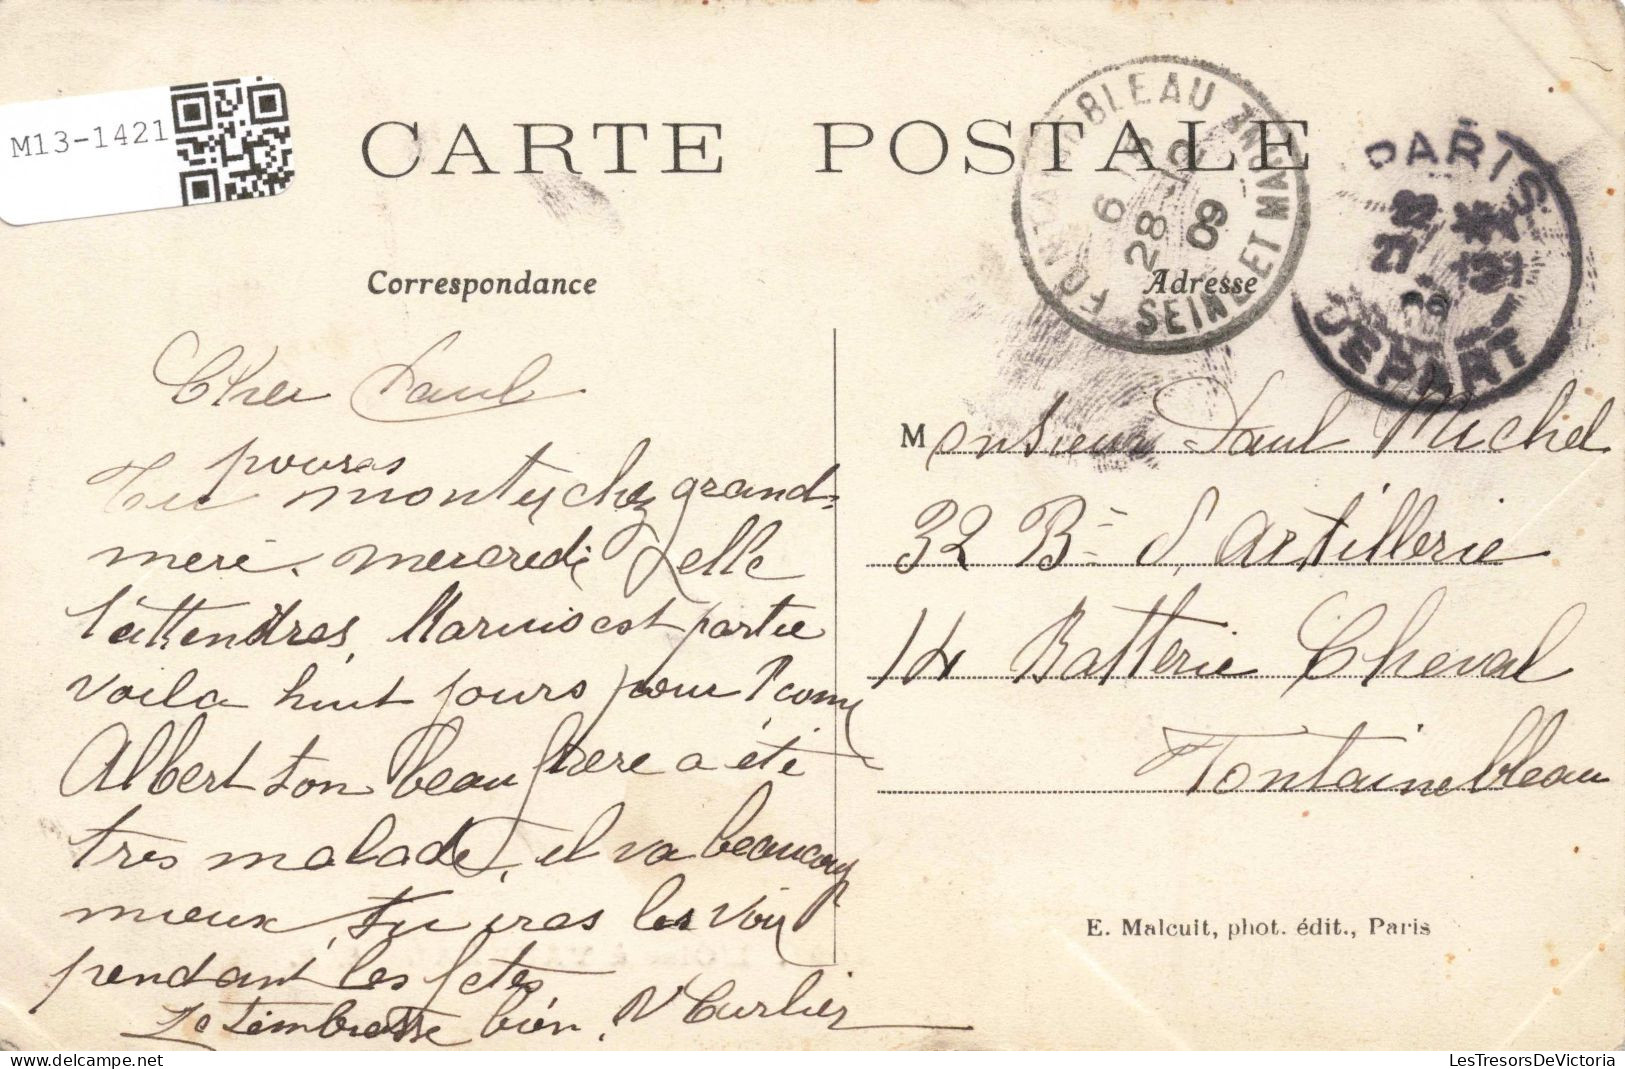 M13-1421
CARTE POSTALE
FONTAINEBLEAU
SEINE ET MARNE
6
28-12
09
PARIS
22
27
DEPART
Correspondance
Adresse
Cher Paul
pouras
Tu monter chez grand-
mere. mercredi elle
t'attendras, Marius est partie
voila huit jours pour
Albert ton beau frere a été
tres malade, il va beaucoup
mieux, tu iras les voir
pendant les fetes
Je t'embrasse bien.
Monsieur Paul Michel
32 B d'Artillerie
14 Batterie Cheval
Fontainebleau
E. Malcuit, phot. édit., Paris
LesTresorsDeVictoria